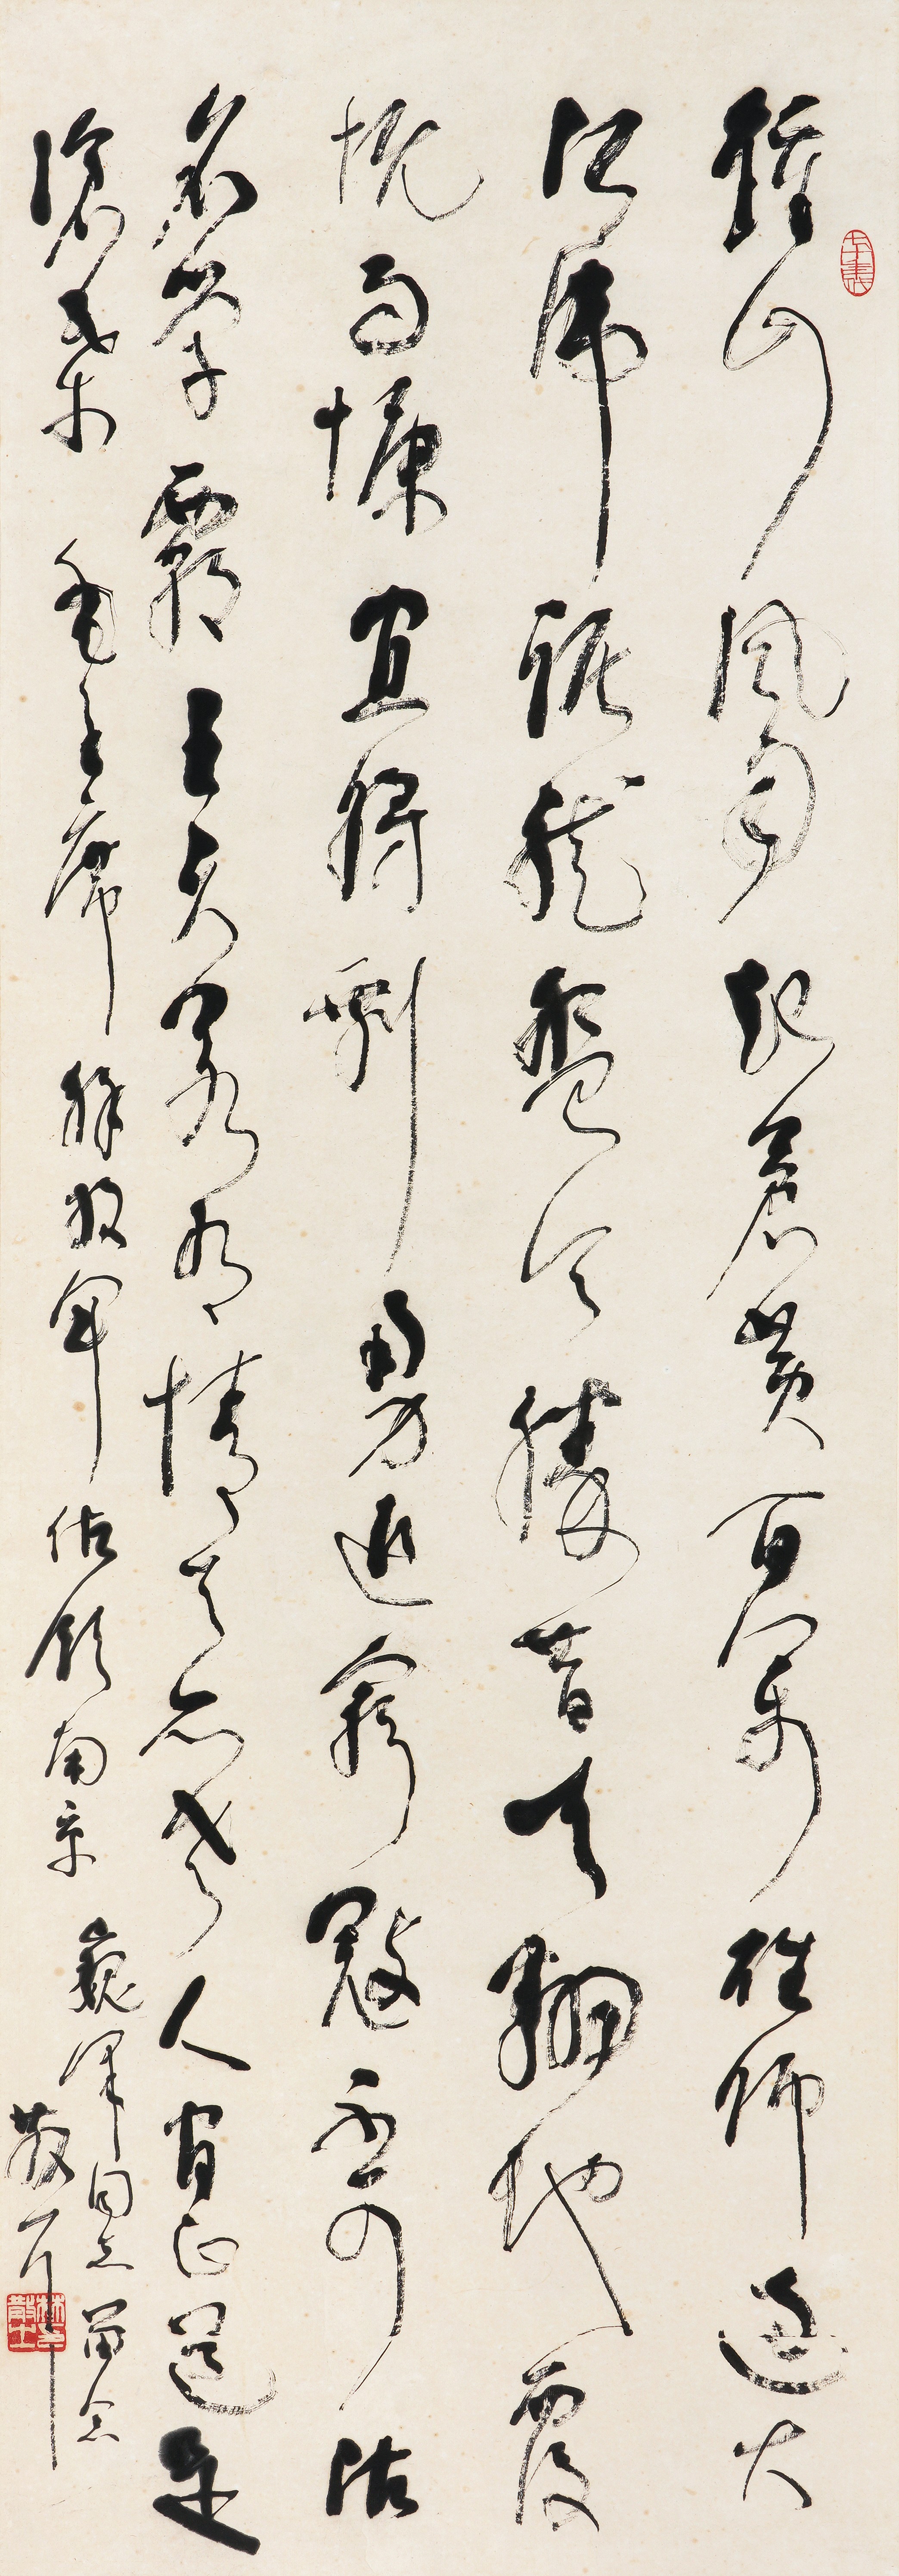 钟山风雨起苍黄百万雄师过大
江虎踞龙盘今胜昔天翻地覆
慨而慷宜将剩勇追穷寇不可沽
名学霸王天若有情天亦老人间正道是
沧桑 毛主席 解放军佔领南京
巍泽同志留念
散耳
左书
林散之